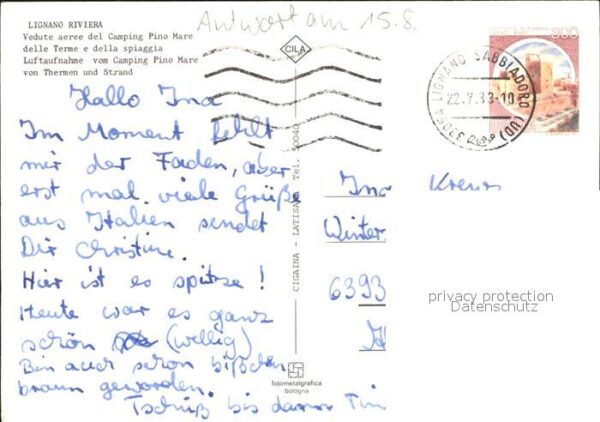 LIGNANO RIVIERA
Vedute aeree del Camping Pino Mare
delle Terme e della spiaggia
Luftaufnahme vom Camping Pino Mare
von Thermen und Strand
Antwort am 15.8.
CILA
300
LIGNANO SABBIADORO (UD)
22.7.83-10
Hallo Ina
Im Moment fehlt
mir der Faden, aber
erst mal viele Grüße
aus Italien sendet
Dir Christine.
Hier ist es spitze!
Heute war es ganz
schön (wellig)
Bin auch schon bißchen
braun geworden.
Tschüß bis dann
CIGAINA - LATISA
Tel.
fotometalgrafica
bologna
Ina
Winter
6393
privacy protection
Datenschutz